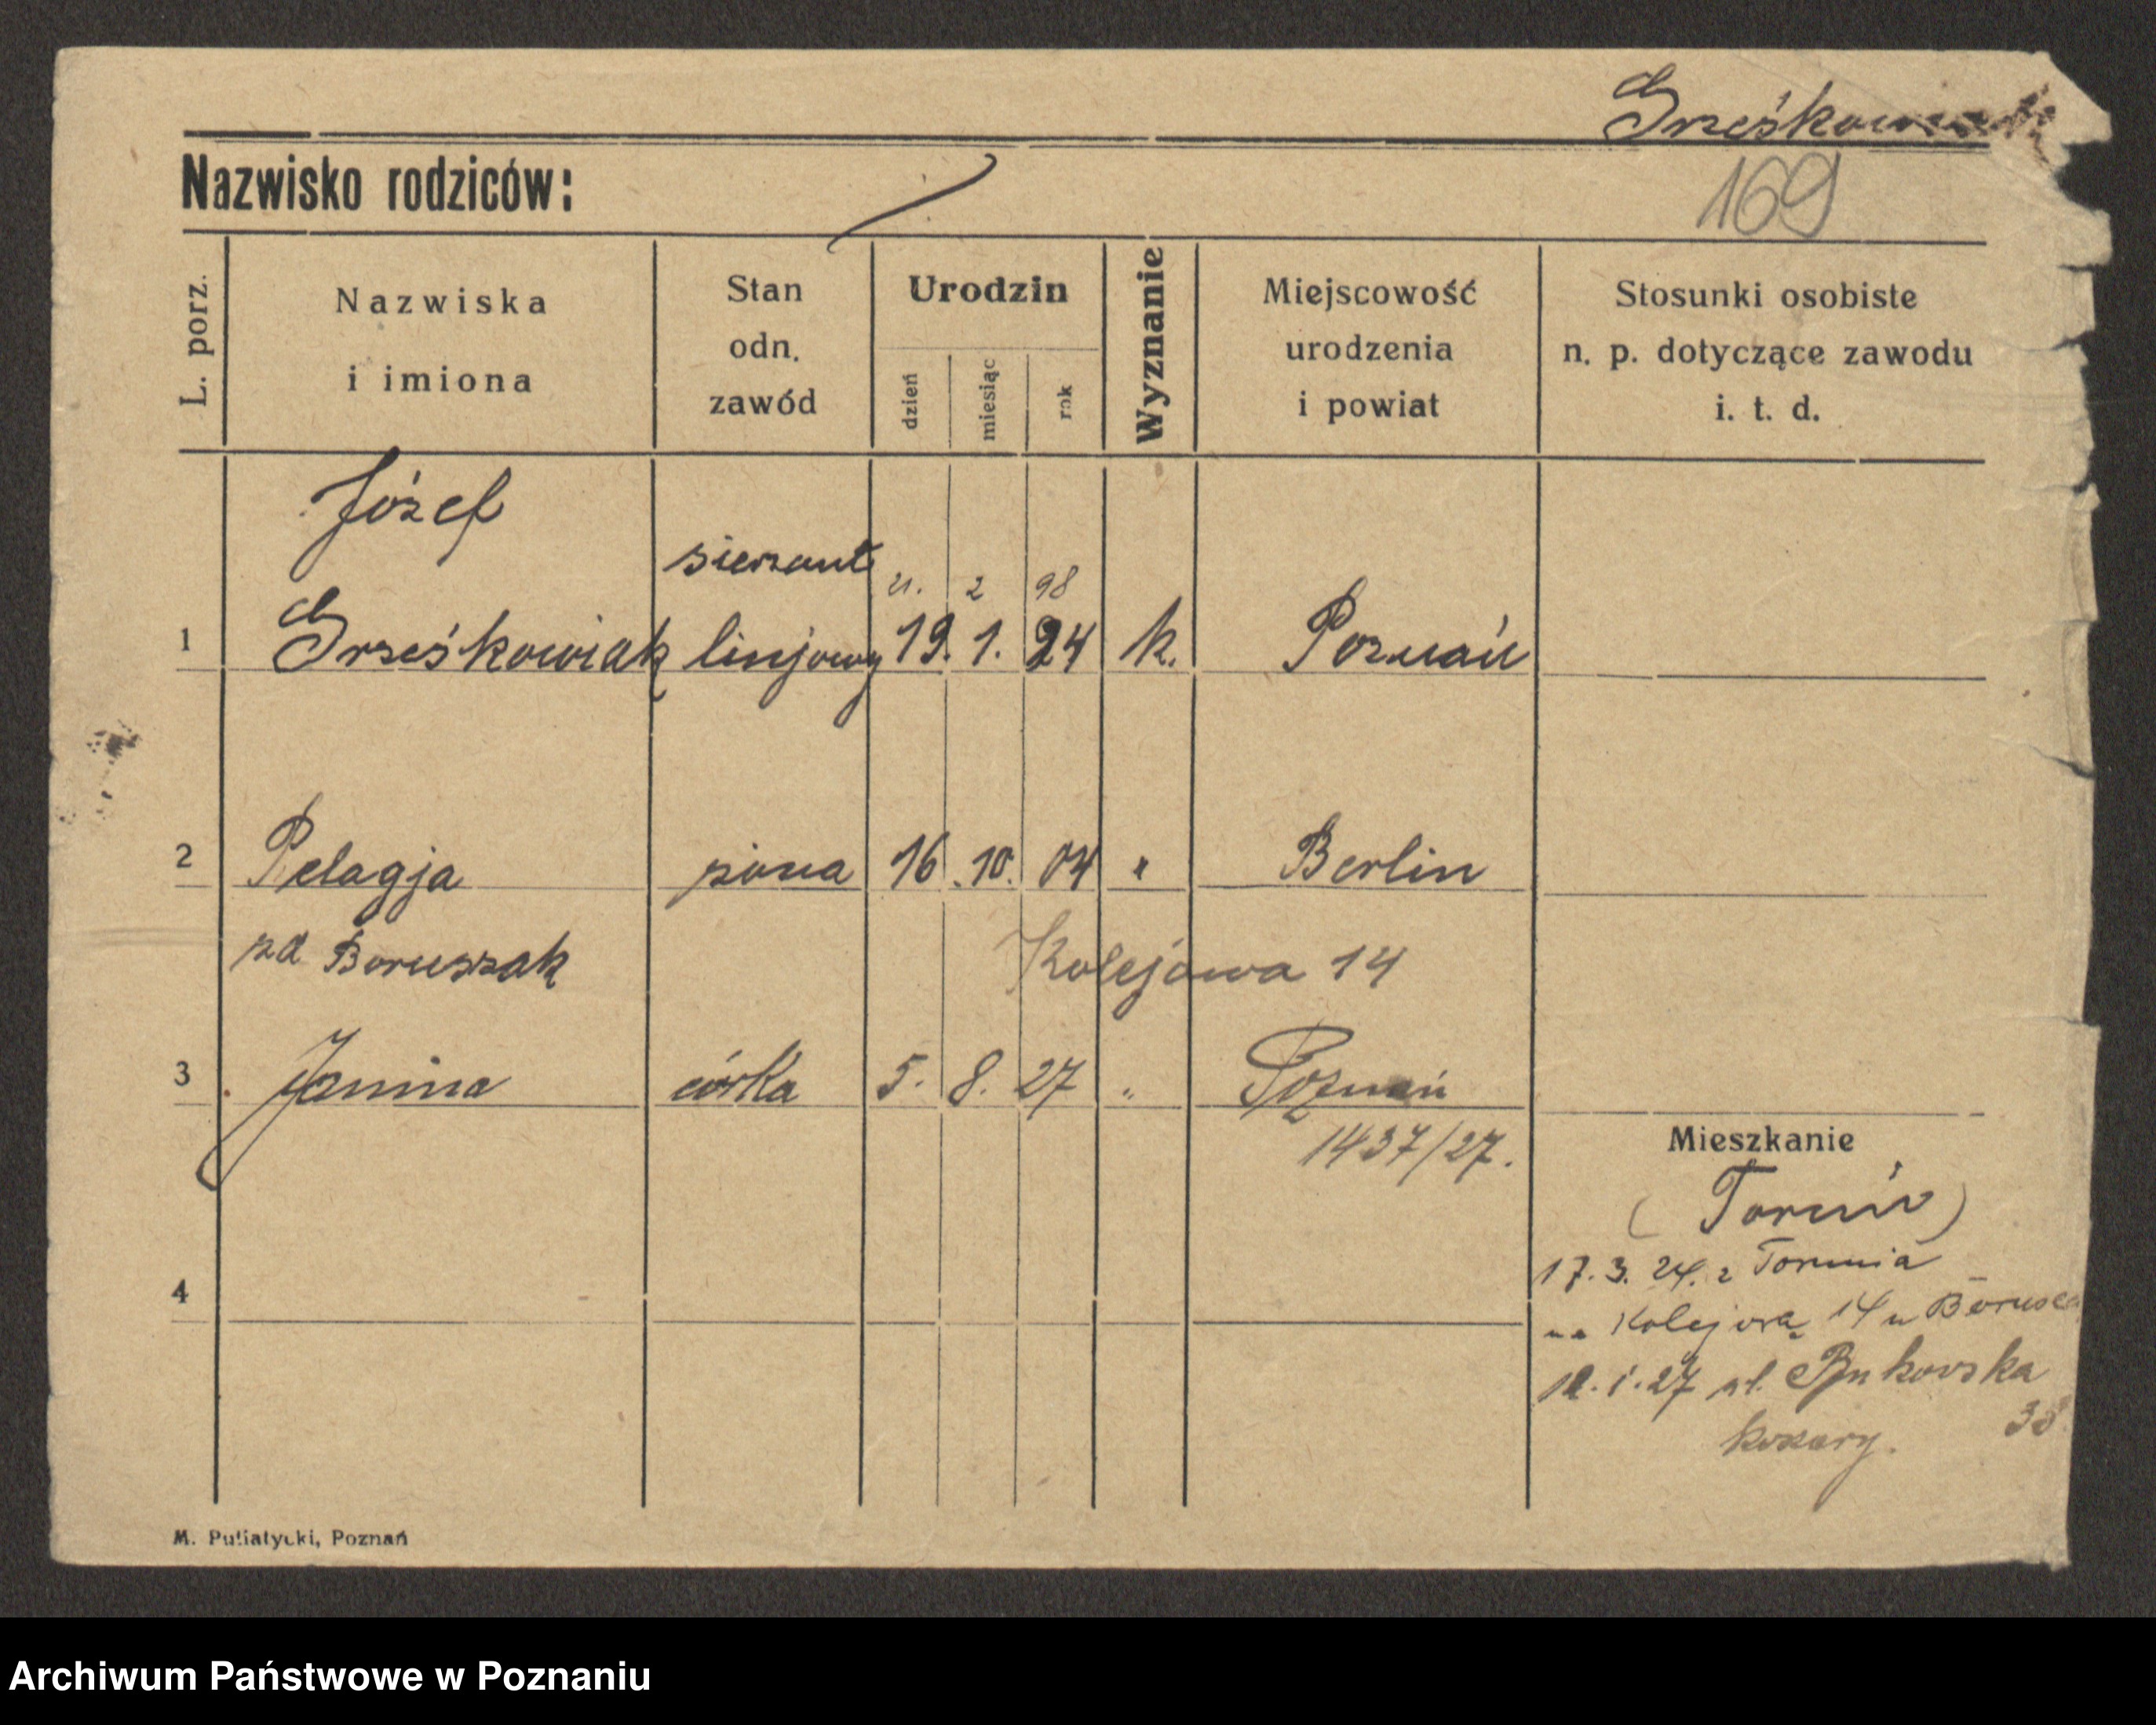 Grześkowiak
Nazwisko rodziców:
169
L. porz.
Nazwiska
i imiona
Stan
odn.
zawód
Urodzin
dzień
miesiąc
rok
Wyznanie
Miejscowość
urodzenia
i powiat
Stosunki osobiste
n. p. dotyczące zawodu
i. t. d.
Józef
sierzant
21. 2 98
1 Grześkowiak linjowy 19. 1. 24 k. Poznań
2 Pelagja żona 16. 10. 04 " Berlin
zd Boruszak
Kolejowa 14
3 Janina córka 5. 8. 27 " Poznań
1437/27.
Mieszkanie
(Toruń)
17. 3. 24. z Torunia
4
na Kolejową 14 u
ul. Bukowska
38
koszary.
M. Putiatycki, Poznań
Archiwum Państwowe w Poznaniu